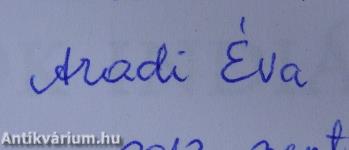 Aradi Éva
Antikvárium.hu